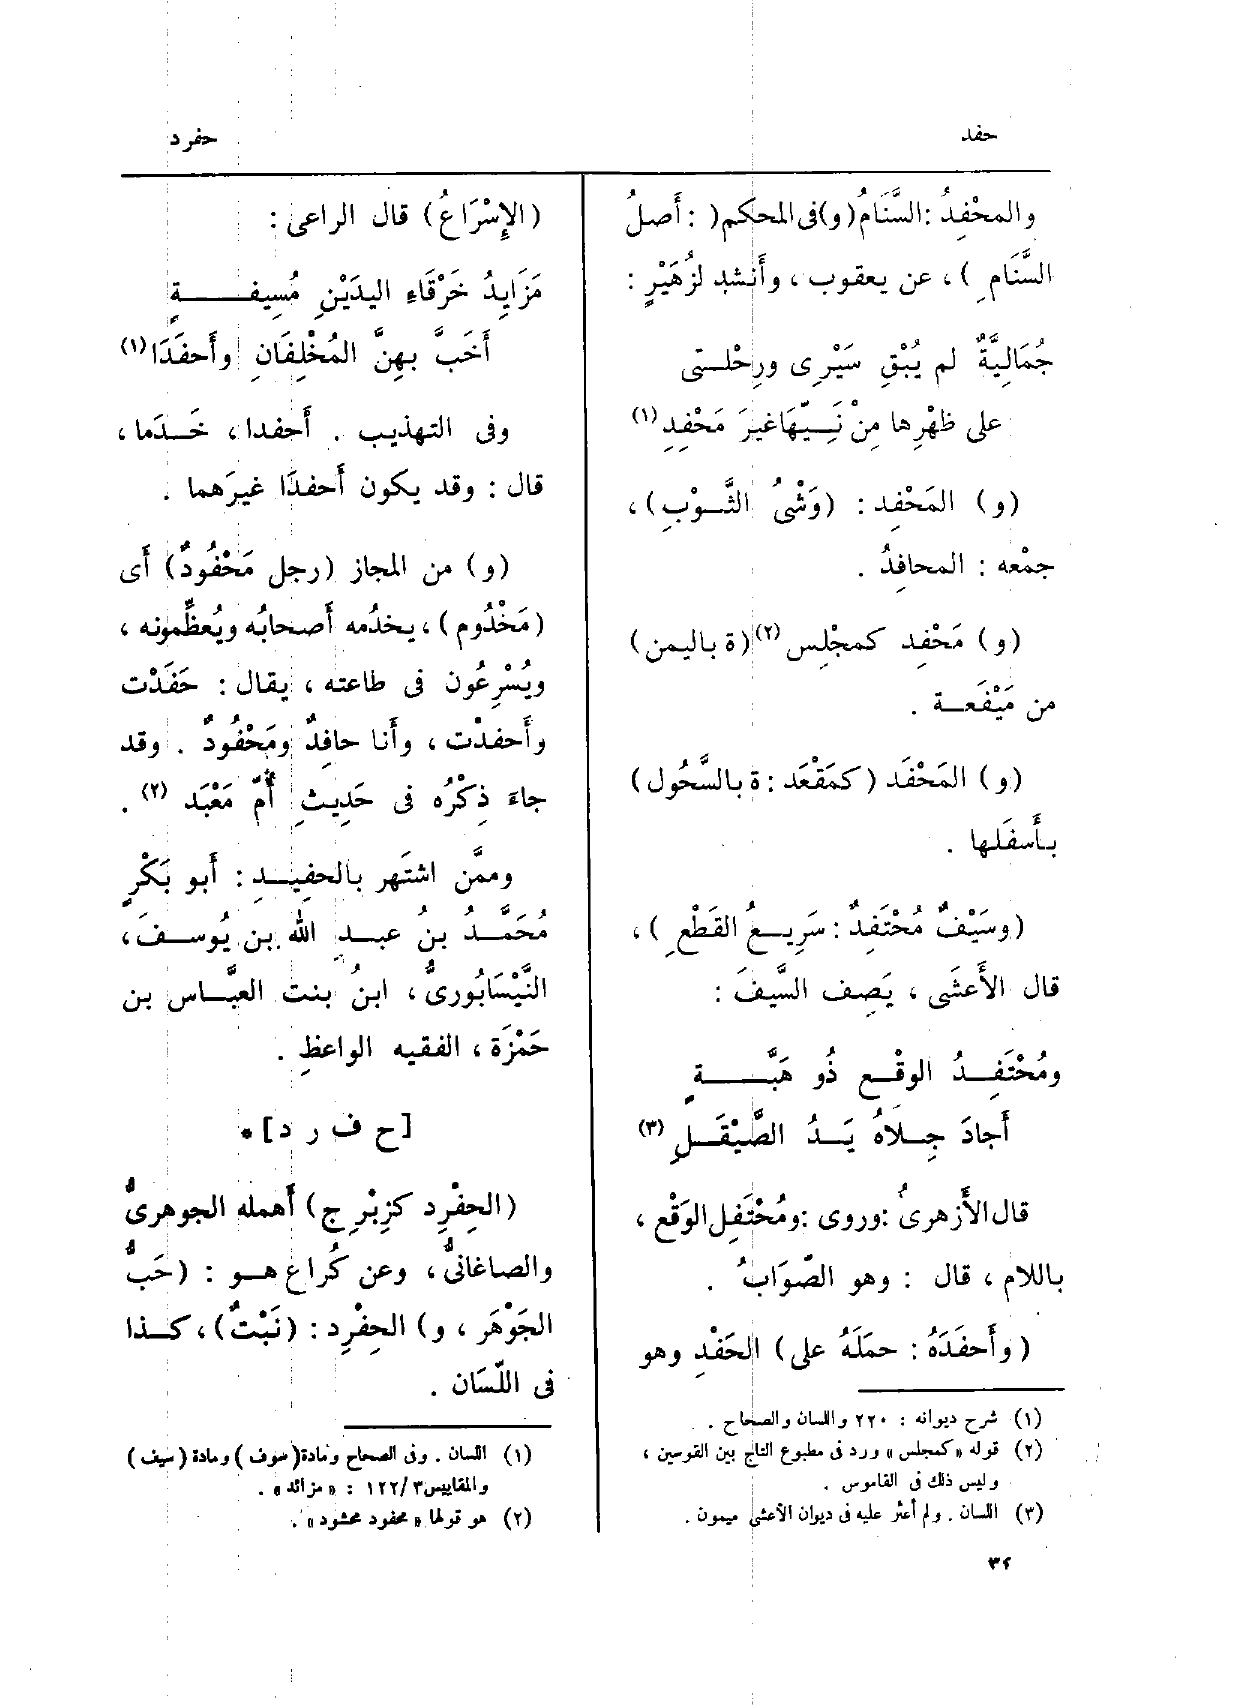 حفد
حفرد
والمحْفِدُ :السَّنَامُ (و)فى المحكم( : أَصلُ
السَّنَامِ ) ، عن يعقوب ، وأَنشد لزُهَيْرٍ :
جُمَالِيَّةٌ لم يُبْقِ سَيْرِى ورِحْلـتى
على ظهْرِها مِنْ نَيِّهَا غيرَ مَحْفِدِ (١)
(و) المَحْفِد : (وَشْىُ الثَّـوْبِ) ،
جمْعه : المحافِدُ .
(و) مَحْفِد كمجْلِس (٢) (ة باليمن)
من مَيْفَعـة .
(و) المَحْفَد (كمَقْعَد : ة بالسَّحُول)
بأَسفَلها .
(وسَيْفٌ مُحْتَفِدٌ : سَرِيـعُ القَطْعِ ) ،
قال الأَعشَى ، يَصِف السَّيفَ :
ومُحْتَفِـدُ الوقْـعِ ذُو هَبَّـــةٍ
أَجادَ جِـلَاهُ يَـدُ الصَّيْقَـلِ (٣)
قال الأَزهرىُّ :وروى :ومُحْتَفِل الوَقْع ،
باللام ، قال : وهو الصّوَابُ .
(وأَحفَدَهُ : حمَلَهُ على) الحَفْدِ وهو
(١) شرح ديوانه : ٢٢٠ واللسان والصحاح .
(٢) قوله « كمجلس » ورد فى مطبوع التاج بين القوسين ،
وليس ذلك فى القاموس .
(٣) اللسان . ولم أعثر عليه فى ديوان الأعشى ميمون .
٣٢
(الإِسْرَاعُ) قال الراعى :
مَزَايِدُ خَرْقَاءِ اليدَيْنِ مُسِيفـــةٍ
أَخَبَّ بهِنَّ المُخْلِفَانِ وأَحفَدَا (١)
وفى التهذيب . أَحفدا ، خَـدَما ،
قال : وقد يكون أَحفدَا غيرَهما .
(و) من المجاز (رجل مَحْفُودٌ) أَى
(مَخْدُوم) ، يخدُمه أَصحابُه ويُعظِّمونه ،
ويُسْرِعُون فى طاعته ، يقال : حَفَدْت
وأَحفدْت ، وأَنا حافِدٌ ومَحْفُودٌ . وقد
جاءَ ذِكْرُه فى حَدِيثِ أُمِّ مَعْبَد (٢) .
وممَّن اشتَهر بالحفِيـدِ : أَبو بَكْرٍ
مُحَمَّـدُ بنُ عبـدِ الله بن يُوسـفَ،
النَّيْسَابُورىُّ ، ابنُ بنت العبَّـاس بن
حَمْزَة ، الفقيه الواعظِ .
[ح ف ر د] *
(الحِفْرِد كزِبْرِج) أَهمله الجوهرىُّ
والصاغانىُّ ، وعن كُراع هـو : (حَبُّ
الجَوْهَر ، و) الحِفْرِد : (نَبْتٌ) ، كـذا
فى اللّسَان .
(١) اللسان . وفى الصحاح ومادة (سوف) ومادة (سيف)
والمقاييس ٣ /١٢٢ : « مزائد » .
(٢) هو قولها « محفود محشود » .